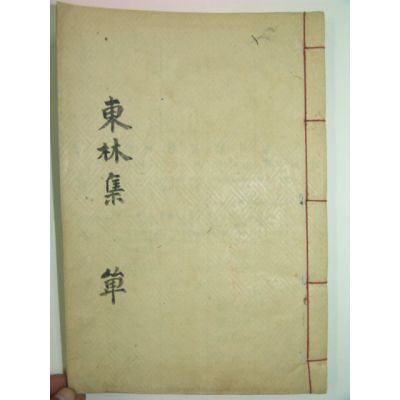 東林集 單